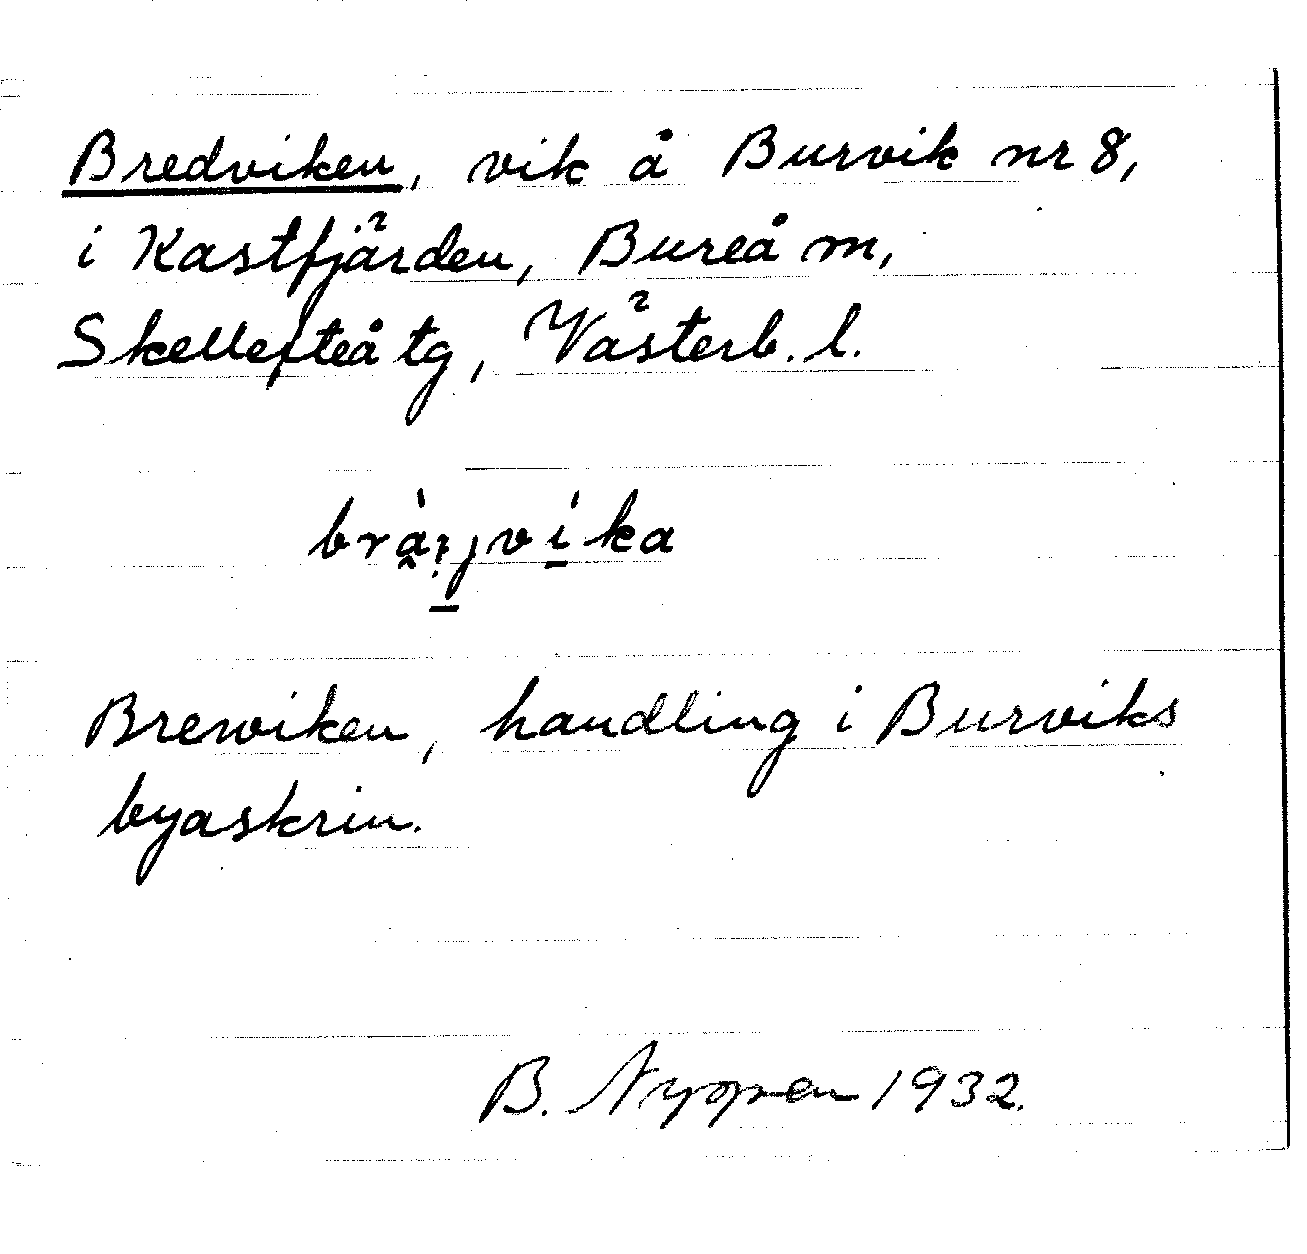 Bredviken, vik å Burvik nr 8,
i Kastfjärden, Bureå m,
Skellefteå tg, Västerb. l.
Brewiken, handling i Burviks
byaskrin.
B. Nyppen 1932.